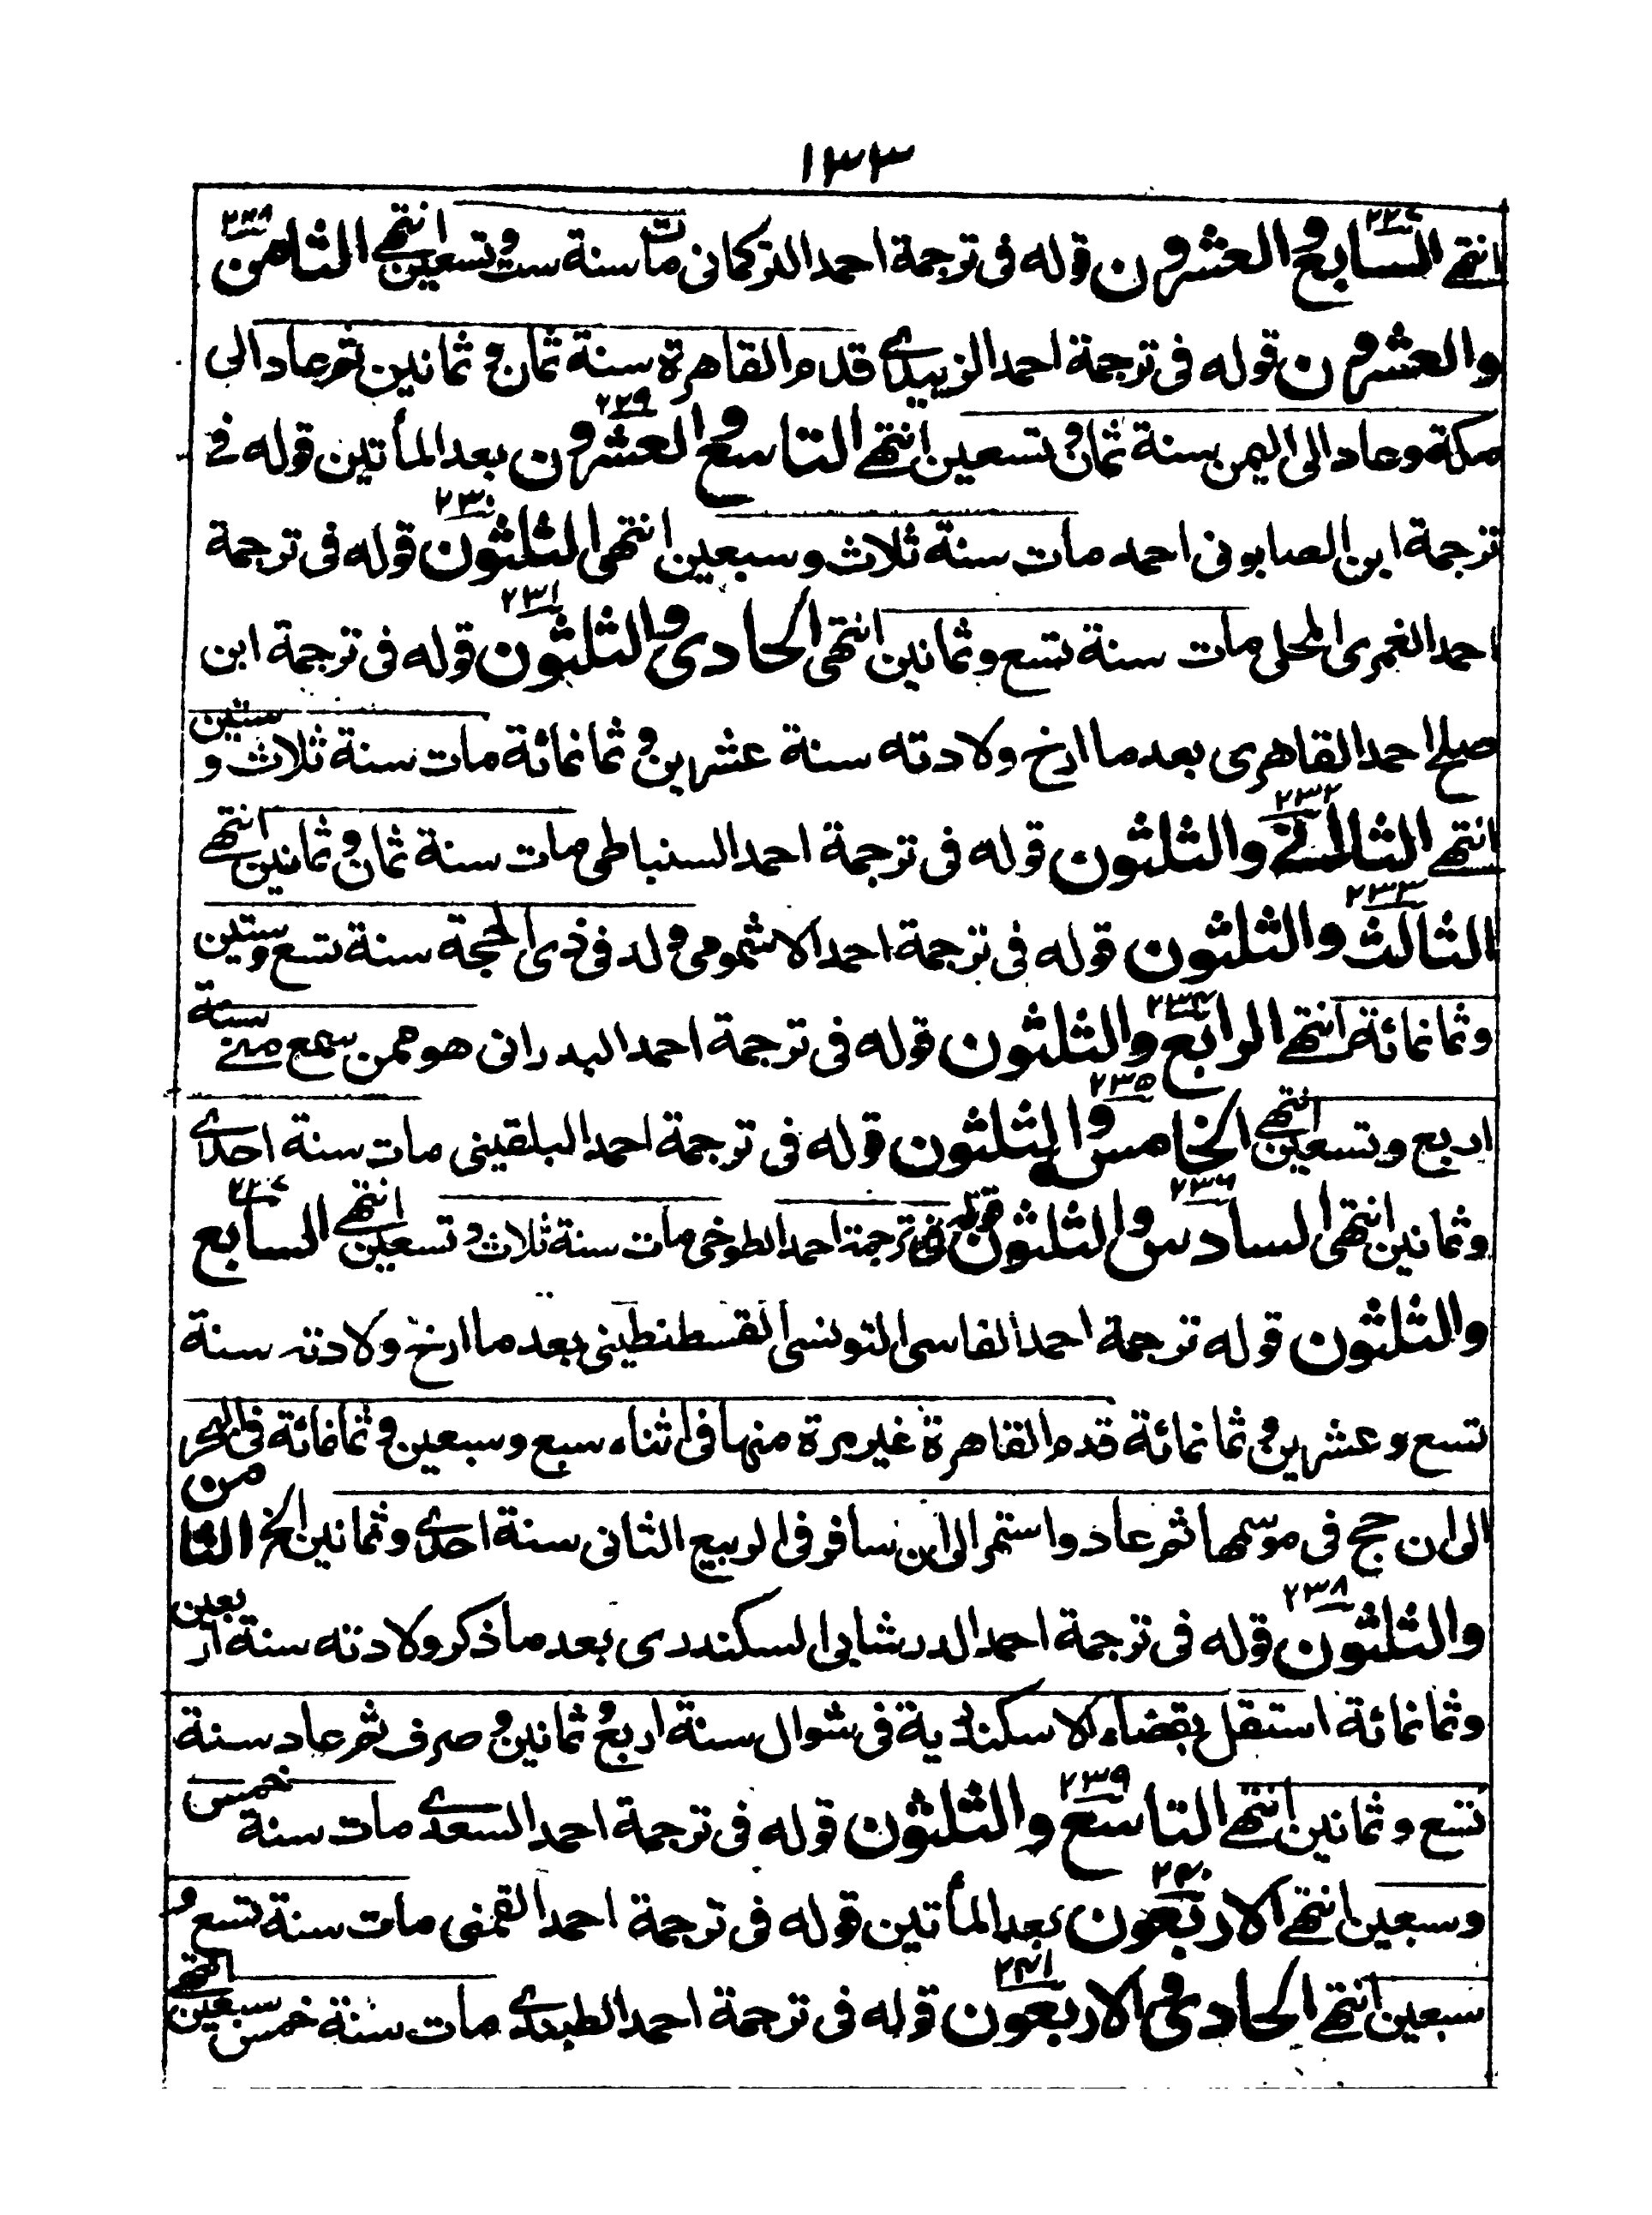 ١٣٣
انتهى السابع والعشرون ٢٢٧ قوله فى ترجمة احمد التركمانى مات سنة ست وتسعين انتهى الثامن ٢٢٨
والعشرون قوله فى ترجمة احمد الزبيدى قدم القاهرة سنة ثمان وثمانين ثم عاد الى
مكة وعاد الى اليمن سنة ثمان وتسعين انتهى التاسع والعشرون ٢٢٩ بعد المأتين قوله فى
ترجمة ابن الصابونى احمد مات سنة ثلاث وسبعين انتهى الثلثون ٢٣٠ قوله فى ترجمة
احمد الغمرى المحلى مات سنة تسع وثمانين انتهى الحادى والثلثون ٢٣١ قوله فى ترجمة ابن
صلح احمد القاهرى بعد ما ارخ ولادته سنة عشرين وثمانمائة مات سنة ثلاث وستين
انتهى الثانى والثلثون ٢٣٢ قوله فى ترجمة احمد السنباطى مات سنة ثمان وثمانين انتهى
الثالث والثلثون ٢٣٣ قوله فى ترجمة احمد الاشمومى ولد فى ذى الحجة سنة تسع وستين
وثمانمائة انتهى الرابع والثلثون ٢٣٤ قوله فى ترجمة احمد البدرانى هو ممن سمع منى سنة
اربع وتسعين انتهى الخامس والثلثون ٢٣٥ قوله فى ترجمة احمد البلقينى مات سنة احدى
وثمانين انتهى السادس والثلثون ٢٣٦ قوله فى ترجمة احمد الطوخى مات سنة ثلاث وتسعين انتهى السابع ٢٣٧
والثلثون قوله ترجمة احمد الفاسى التونسى القسطنطينى بعد ما ارخ ولادته سنة
تسع وعشرين وثمانمائة قدم القاهرة غير مرة منها فى اثناء سبع وسبعين وثمانمائة فى البحر
الى ان حج فى موسمها ثم عاد واستمر الى ان سافر فى الربيع الثانى سنة احدى وثمانين الخ الثامن
والثلثون ٢٣٨ قوله فى ترجمة احمد الدرشابى السكندرى بعد ما ذكر ولادته سنة اربعين
وثمانمائة استقل بقضاء الاسكندرية فى شوال سنة اربع وثمانين وصرف ثم عاد سنة
تسع وثمانين انتهى التاسع والثلثون ٢٣٩ قوله فى ترجمة احمد السعدى مات سنة خمس
وسبعين انتهى الاربعون ٢٤٠ بعد المأتين قوله فى ترجمة احمد القمنى مات سنة تسع و
سبعين انتهى الحادى والاربعون ٢٤١ قوله فى ترجمة احمد الطبدى مات سنة خمس سبعين انتهى